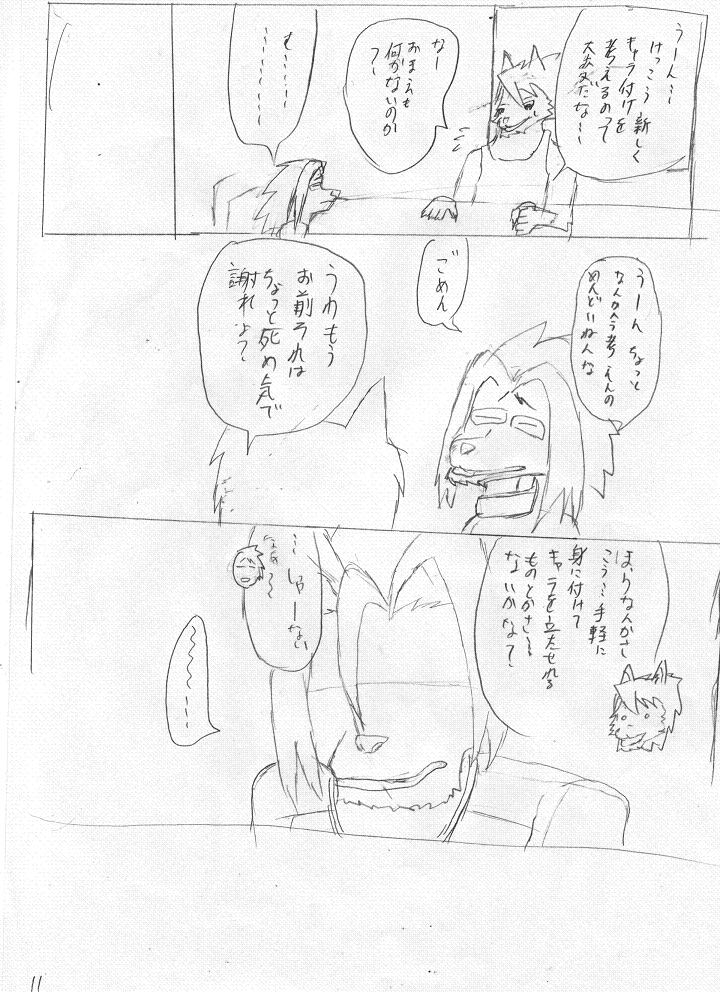 うーん…
けっこう新しく
キャラ付けを
考えるのって
大変だな…
なー
おまえも
何かないのか
?
む……
うーん ちょっと
めんどいねんな
ごめん
うわもう
お前それは
ちょっと死め気で
謝れよ?
ほらなんかさ
こう…手軽に
身に付けて
キャラを立たせれる
ものとかさ…
ないかなて?
…しゃーない
なぁ〜
11